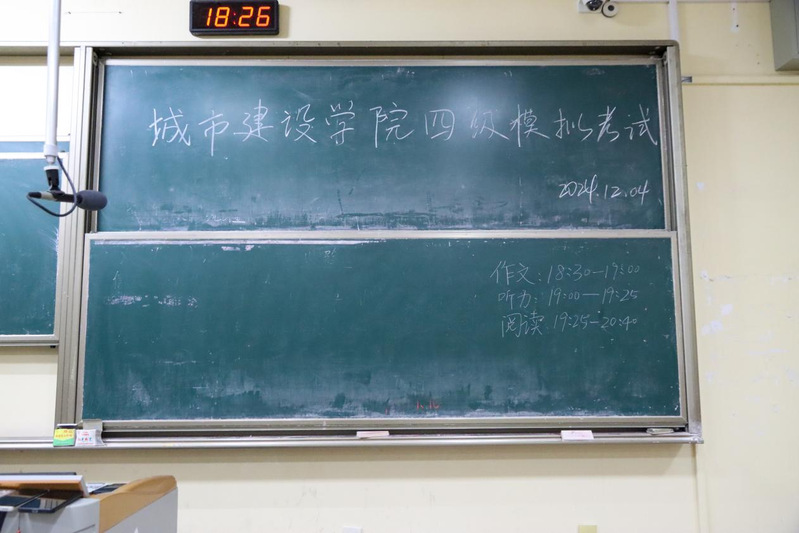 18:26
城市建设学院四级模拟考试
2024.12.04
作文:18:30—19:00
听力:19:00—19:25
阅读 19:25-20:40